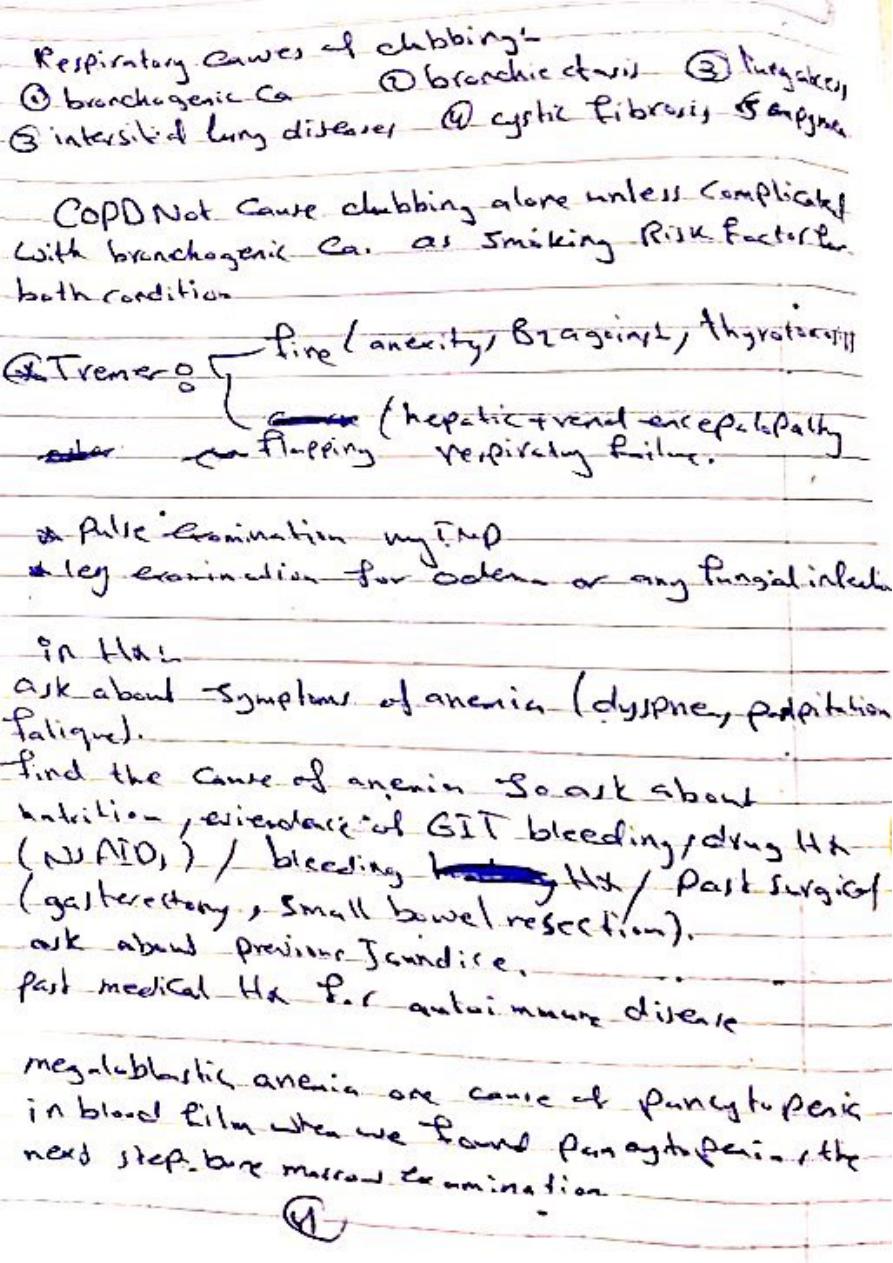 Respiratory causes of clubbing:-
① bronchogenic Ca ② bronchiectasis ③ lung abcess
③ intersitial lung diseases ④ cystic fibrosis 5 empyma
COPD Not cause clubbing alone unless complicated
with bronchogenic Ca. as smoking Risk factor for
both condition
* Tremer: fine (anexity, B2 agoinst, thyrotoxosis
(hepatic + renal encepalopathy
flapping respiratory failure.
* pulse examination IMP
* leg examination for odema or any fungial infection
in Hx:
ask about symptoms of anemia (dyspnea, palpitation
fatique).
find the cause of anemia so ask about
nutrition, evidence of GIT bleeding, drug Hx
(NSAIDs) / bleeding Hx / Past surgical
(gasterectomy, small bowel resection).
ask about previous Jaundice.
Past medical Hx for autoimmune disease
megaloblastic anemia one cause of pancytopenia
in blood film when we found pancytopenia, the
next step bone marrow examination
4